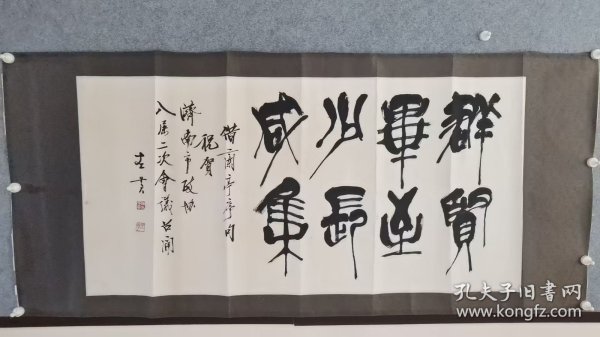 群賢
畢至
少長
咸集
借蘭亭序句
祝賀
濟南市政協
八届二次會議召開
孔夫子旧书网
www.kongfz.com